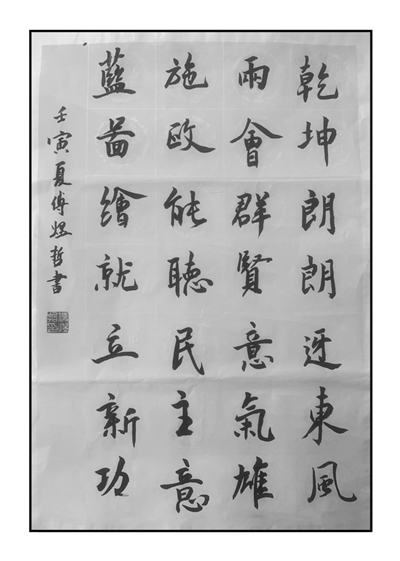 乾坤朗朗迓東風
兩會群賢意氣雄
施政能聽民主意
藍啚繪就立新功
壬寅夏傅煜哲書